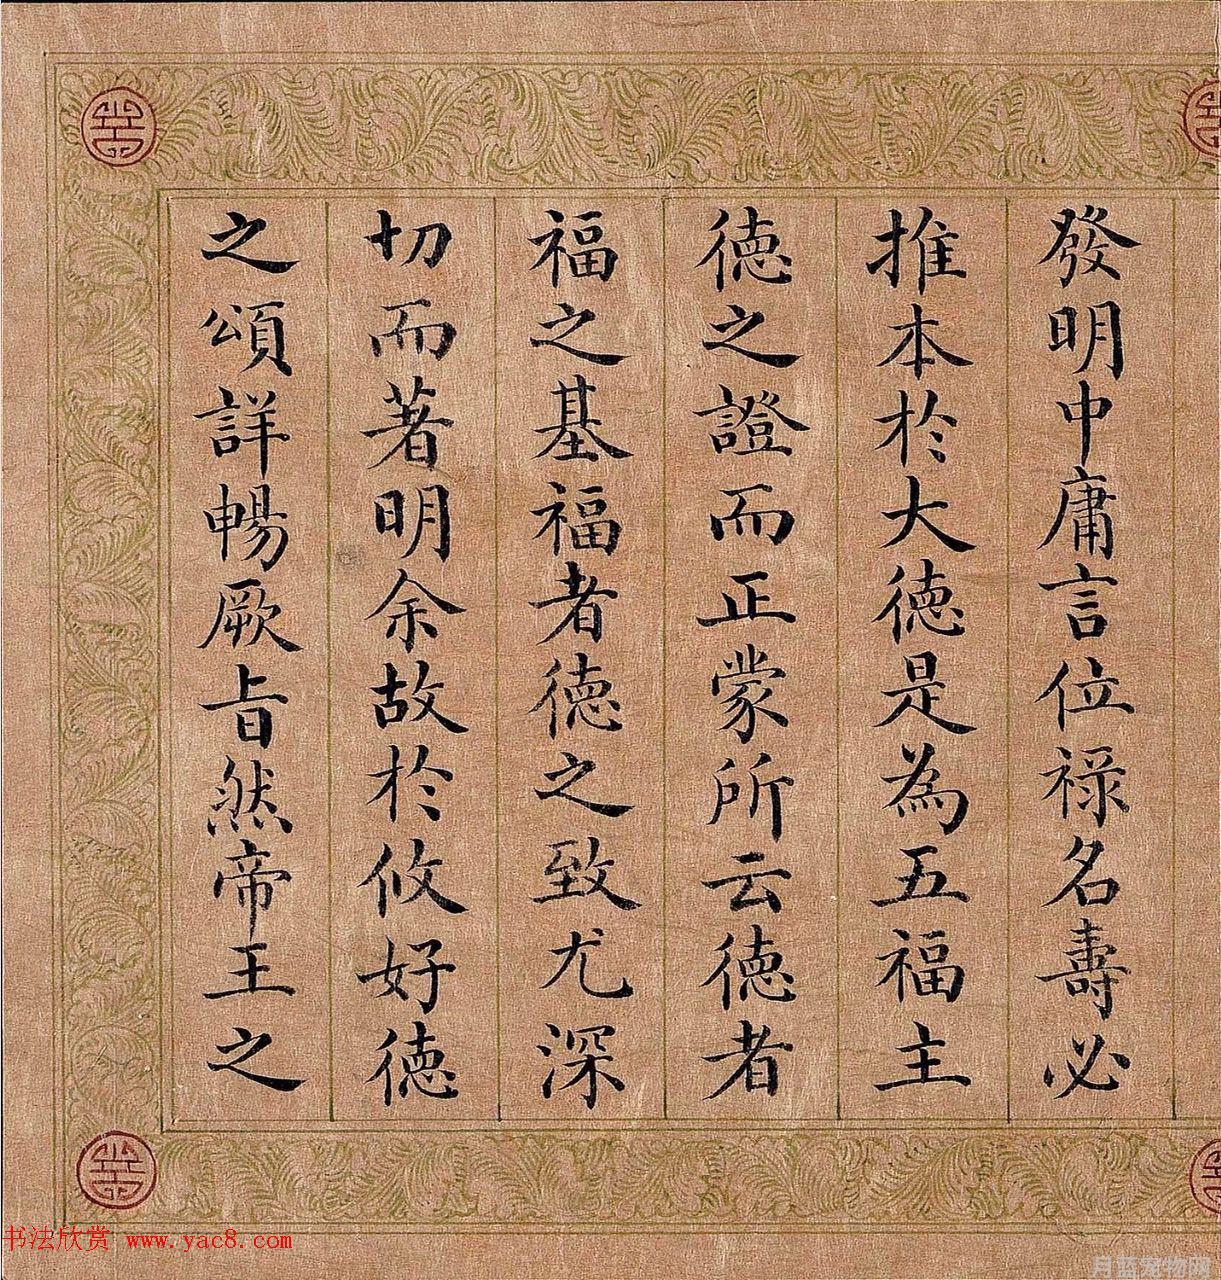 發明中庸言位祿名壽必
推本於大德是為五福主
德之證而正蒙所云德者
福之基福者德之致尤深
切而著明余故於攸好德
之頌詳暢厥旨然帝王之
书法欣赏 www.yac8.com
月蓝宠物网